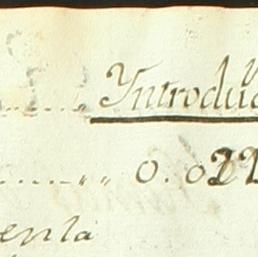 Introduc
0. 022
enta